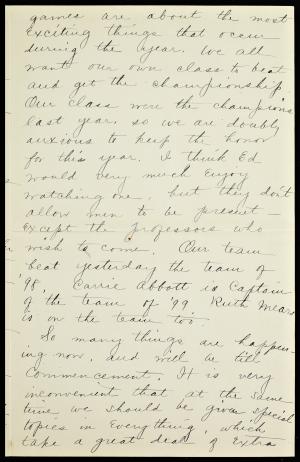 games are about the most
exciting things that occur
during the year. We all
want our own class to beat
and get the championship.
Our class were the champions
last year, so we are doubly
anxious to keep the honor
for this year. I think Ed
would very much enjoy
watching one, but they don't
allow men to be present -
except the professors who
wish to come. Our team
beat yesterday the team of
'98. Carrie Abbott is Captain
of the team of '99. Ruth Mears
is on the team too.
So many things are happen-
ing now, and will be till
Commencement. It is very
inconvenient that at the same
time we should be given special
topics in everything, which
take a great deal of extra